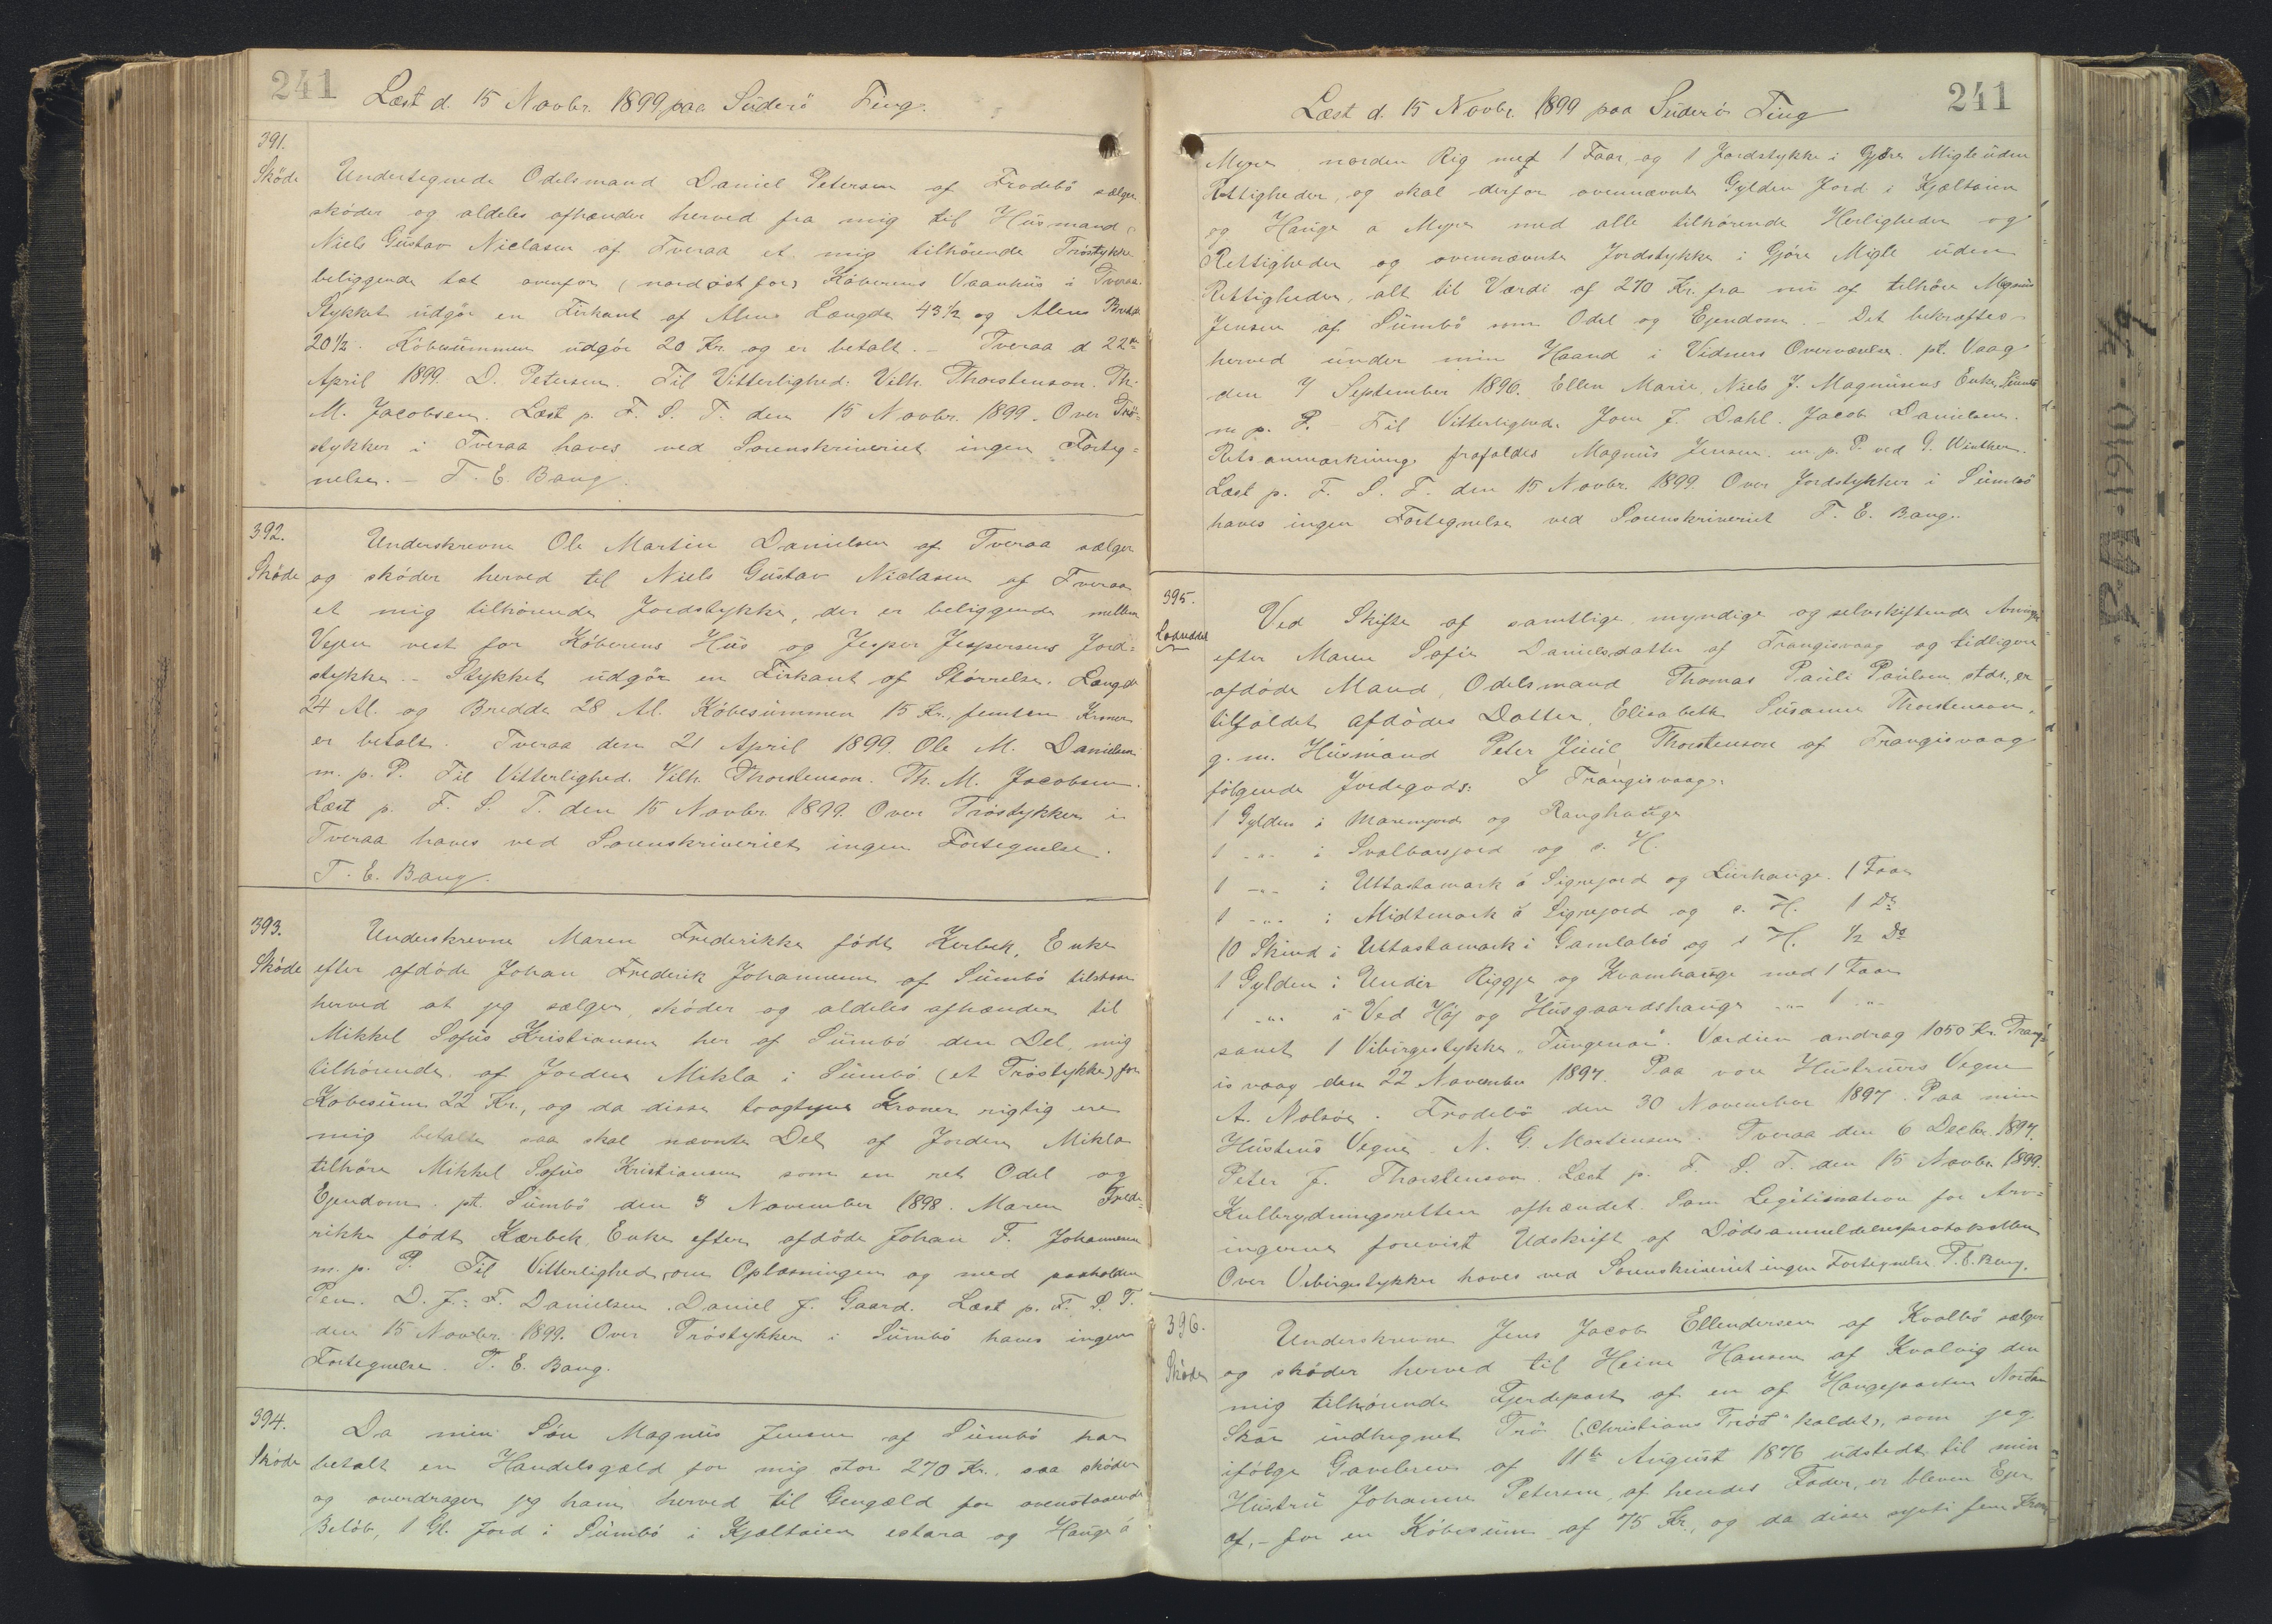 241
Læst d. 15 Novbr. 1899 paa Süderö Ting.
391.
Sköde
Undertegnede Odelsmand Daniel Petersen af Frodebö sælger
sköder og aldeles afhænder herved fra mig til Hüsmand
Niels Güstav Niclasen af Tveraa et mig tilhörende Tröstykke
beliggende tæt ovenfor (nordöst for) Köberens Vaanhüs i Tveraa
Stykket üdgör en Firkant af Alens Længde 43 1/2 og Alens Bredde
20 1/2. Köbesümmen üdgör 20 Kr. og er betalt. – Tveraa d 22de
April 1899. D. Petersen. Til Vitterlighed: Vilh. Thorstenson. Th.
M. Jacobsen. Læst p. F. S. T. den 15 Novbr. 1899. Over Trö=
stykker i Tveraa haves ved Sorenskriveriet ingen Forteg=
nelse. – T. E. Bang.
392.
Sköde
Underskrevne Ole Martin Danielsen af Tveraa sælger
og sköder herved til Niels Güstav Niclasen af Tveraa
et mig tilhörende Jordstykke, der er beliggende mellem
Vejen vest for Köberens Hüs og Jesper Jespersens Jord=
stykke. – Stykket üdgör en Firkant af Störrelse. Længde
24 Al. og Bredde 28 Al. Köbesümmen 15 Kr. femten Kroner
er betalt. Tveraa den 21 April 1899. Ole M. Danielsen
m. p. P. Til Vitterlighed. Vilh. Thorstenson. Th. M. Jacobsen.
Læst p. F. S. T. den 15 Novbr. 1899. Over Tröstykker i
Tveraa haves ved Sorenskriveriet ingen Fortegnelse.
T. E. Bang.
393.
Sköde
Underskrevne Maren Frederikke födt Kerbek, Enke
efter afdöde Johan Frederik Johannesen af Sümbö tilstaar
herved at jeg sælger, sköder og aldeles afhænder til
Mikkel Sofüs Kristiansen her af Sümbö den Del mig
tilhörende af Jorden Mikla i Sümbö (et Tröstykke) for
Köbesüm 22 Kr., og da disse toogtyve Kroner rigtig ere
mig betalte saa skal nævnte Del af Jorden Mikla
tilhöre Mikkel Sofüs Kristiansen som en ret Odel og
Ejendom. pt. Sümbö den 3 November 1898. Maren Frede=
rikke födt Kærbek, Enke efter afdöde Johan F. Johannesen
m. p. P. Til Vitterlighed, om Oplæsningen og med paaholden
Pen. D. J. F. Danielsen. Daniel J. Gaard. Læst p. F. S. T.
den 15 Novbr. 1899. Over Tröstykker i Sümbö haves ingen
Fortegnelse. T. E. Bang.
394.
Sköde
Da min Sön Magnüs Jensen af Sümbö har
betalt en Handelsgæld for mig stor 270 Kr., saa sköder
og overdrager jeg ham herved til Gengæld for ovenstaaende
Belöb, 1 Gl. Jord i Sümbö i Kjæltaien estara og Haüge á
241
Læst d. 15 Novbr. 1899 paa Süderö Ting
Myre norden Rig med 1 Faar, og 1 Jordstykke i Gjöre Migle üden
Rettigheder, og skal derfor ovennævnte Gylden Jord i Kjæltaien
og Haüge a Myre med alle tilhörende Herligheder og
Rettigheder og ovennævnte Jordstykke i Gjöre Migle üden
Rettigheder, alt til Værdi af 270 Kr. fra nü af tilhöre Magnüs
Jensen af Sümbö som Odel og Ejendom. – Det bekræftes
herved ünder min Haand i Vidners Overværelse. pt. Vaag
den 7 September 1896. Ellen Marie, Niels J. Magnüsens Enke, Sümbö
m p. P. – Til Vitterlighed. Joen J. Dahl. Jacob Danielsen.
Retsanmærkning frafaldes Magnüs Jensen. m. p. P. ved P. Winther.
Læst p. F. S. T. den 15 Novbr. 1899. Over Jordstykker i Sümbö
haves ingen Fortegnelse ved Sorenskriveriet T. E. Bang.
395.
Ved Skifte af samtlige myndige og selvskiftende Arvinger
efter Maren Sofie Danielsdatter af Trangisvaag og tidligere
afdöde Mand, Odelsmand Thomas Paüli Paülsen stds., er
tilfaldet afdödes Datter, Elisabeth Süsanne Thorstenson,
g. m. Hüsmand Peter Jüül Thorstenson af Trangisvaag
fölgende Jordegods: I Trangisvaag.
1 Gylden i Marenjord og Ranghaüge
1 -"- i Svalbarsjord og s. H.
1 -"- i Uttastamark á Signejord og Lürhaüge. 1 Faar
1 -"- i Midtmark á Signejord og s. H. 1 Do
10 Skind i Uttastamark i Gamlabö og s H. 1/2 Do
1 Gylden i Undir Riggje og Kvamhaüge med 1 Faar
1 -"- i Ved Höj og Hüsgaardshaüge -"- 1 -"-
samt 1 Vibirgestykke "Tüngenai". Værdien andrag 1050 Kr. Trang=
isvaag den 22 November 1897. Paa vore Hüstrüers Vegne
A. Nolsöe. Frodebö den 30 November 1897. Paa min
Hüstrüs Vegne. N. G. Mortensen. Tveraa den 6 Decbr. 1897.
Peter J. Thorstenson. Læst p. F. S. T. den 15 Novbr. 1899.
Kulbrydningsretten afhændet. Som Legitimation for Arv=
ingerne forevist Udskrift af Dödsanmeldelsesprotokollen
Over Vibirgestykker haves ved Sorenskriveriet ingen Fortegnelse. T. E. Bang.
396.
Sköde
Underskrevne Jens Jacob Ellendersen af Kvalbö sælger
og sköder herved til Heine Hansen af Kvalvig den
mig tilhörende Fjerdepart af en af Haugeparten Nordan
Skar indhegnet Trö ("Christians Tröd" kaldet), som jeg
ifölge Gavebrev af 11te August 1876 üdstedt til min
Hüstrü Johanne Petersen, af hendes Fader, er bleven Ejer
af, – for en Köbesüm af 75 Kr., og da disse syvti fem Kroner
RA. 1910 3/9